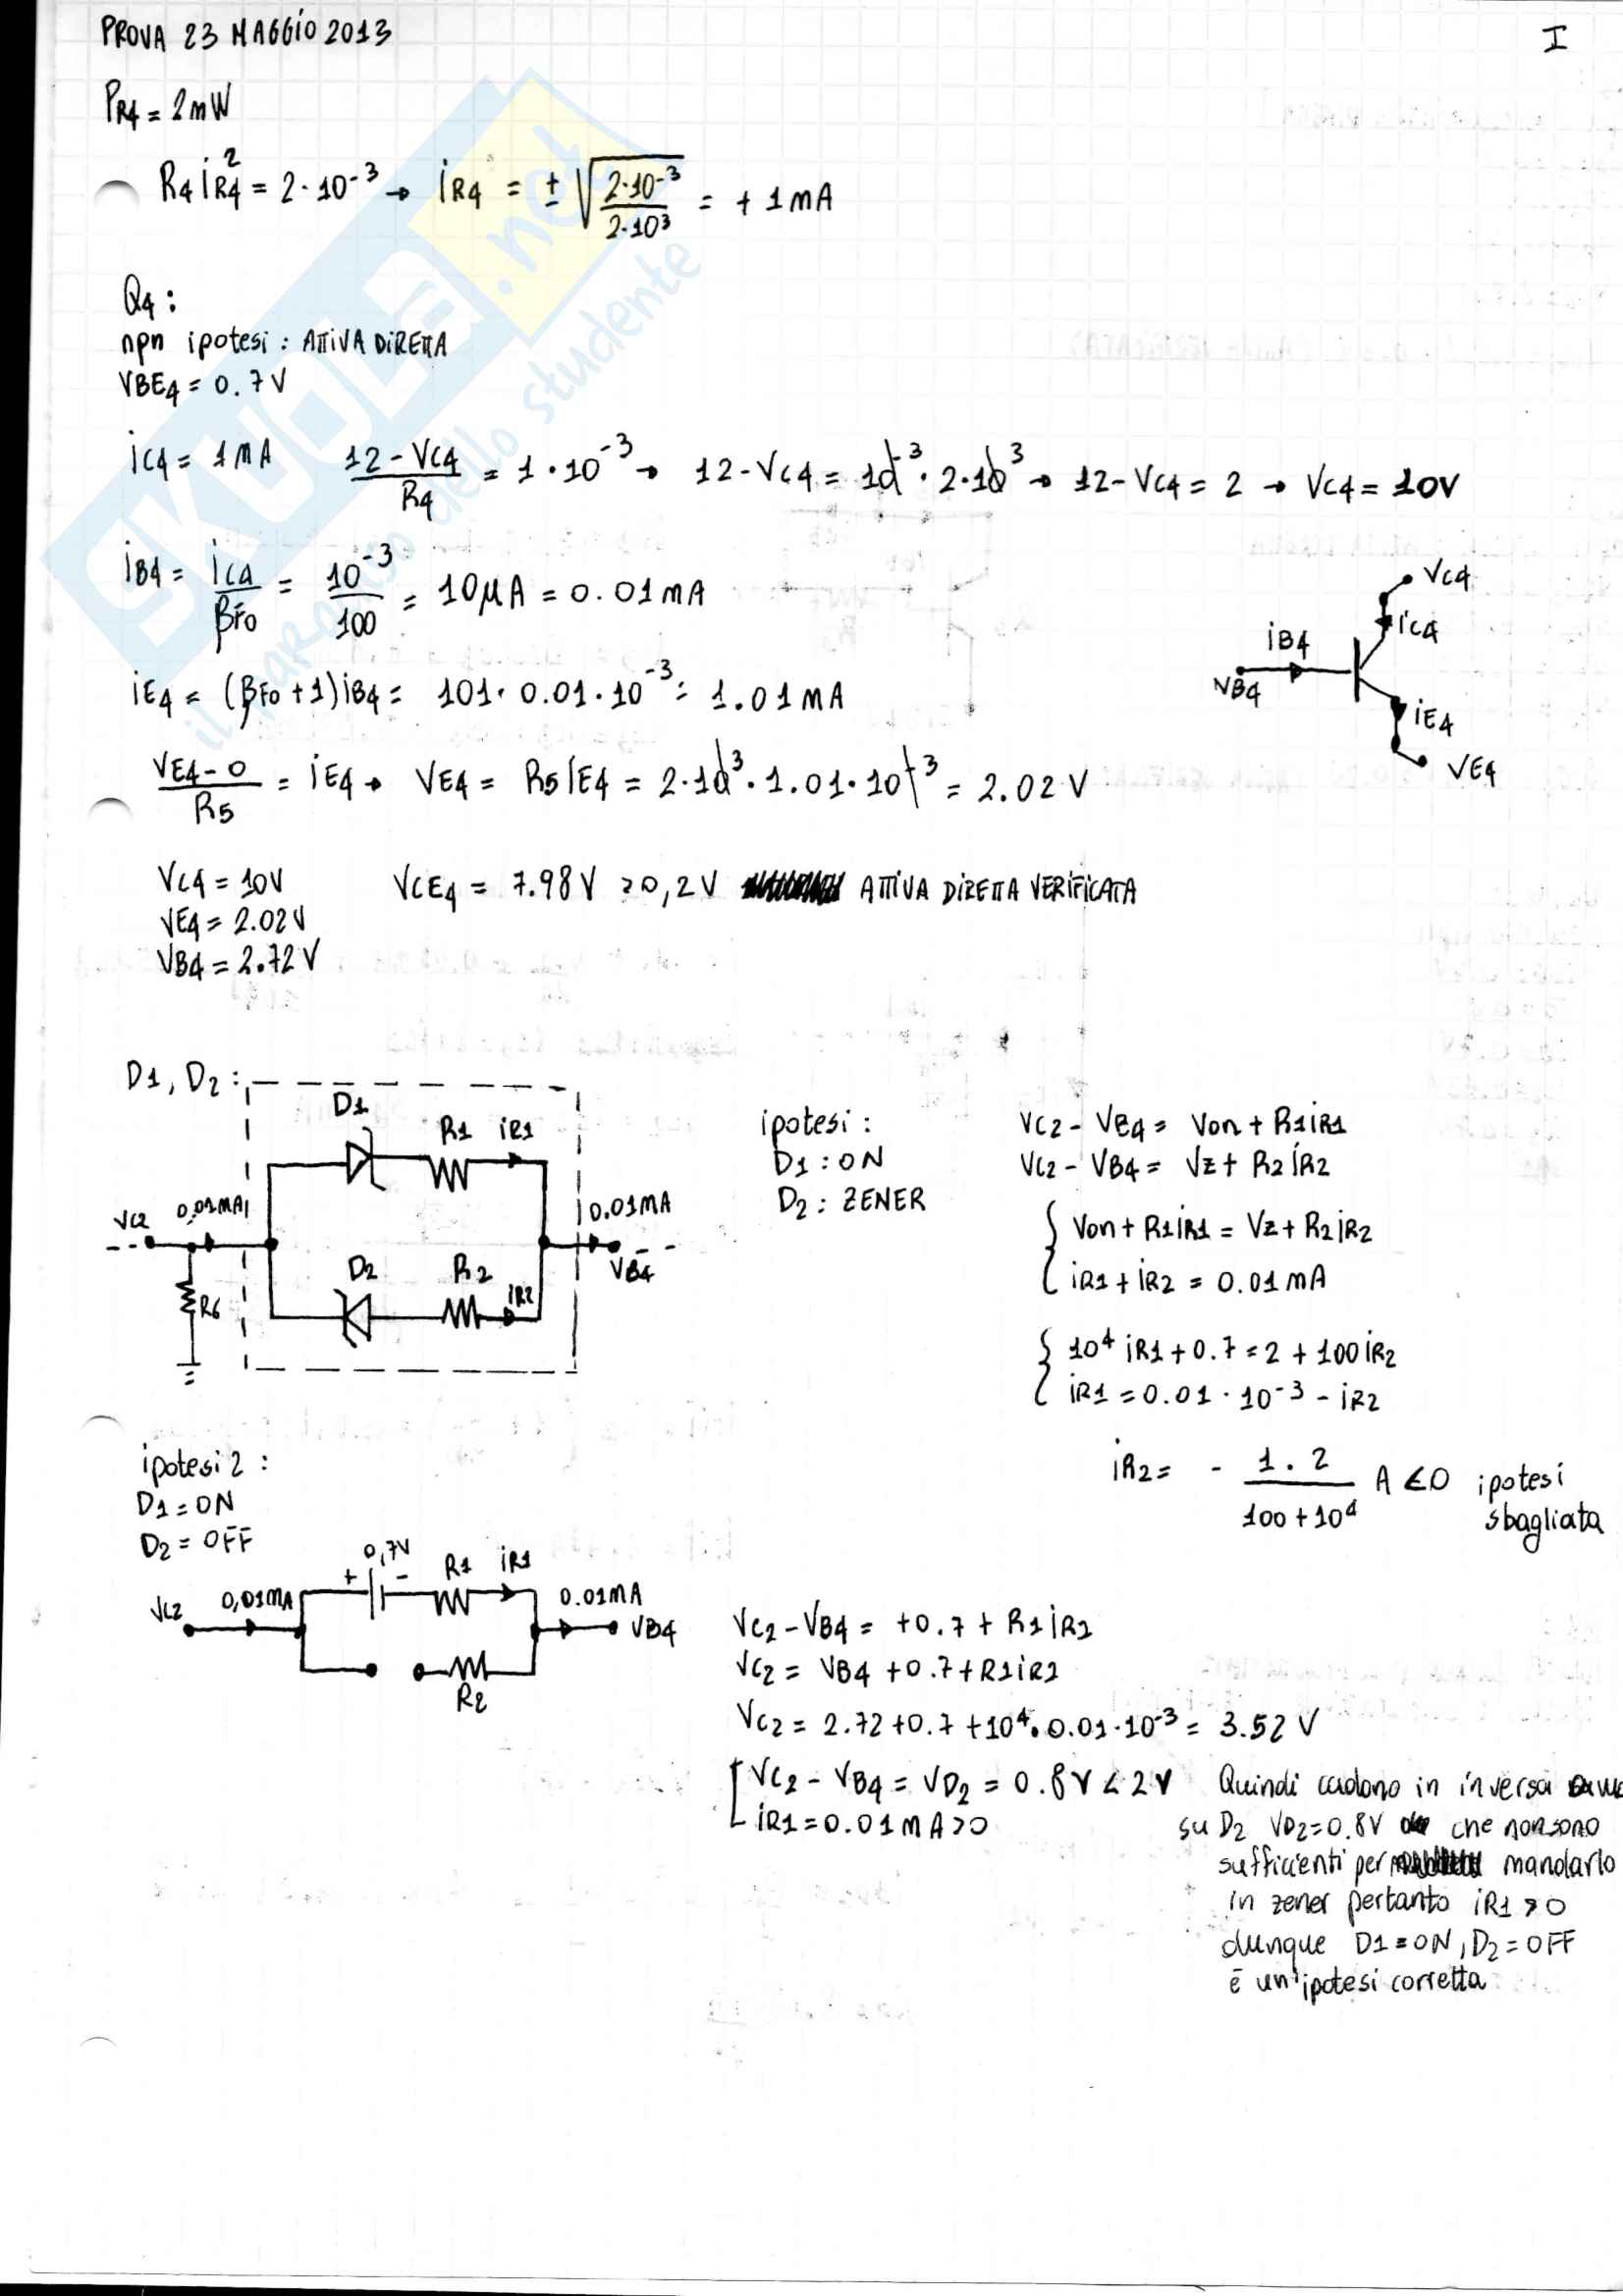 PROVA 23 MAGGIO 2013
I
PR4 = 2mW
R4 iR4² = 2·10⁻³ → iR4 = ± √(2·10⁻³ / 2·10³) = + 1mA
Q4:
npn ipotesi: ATTIVA DIRETTA
VBE4 = 0.7V
iC4 = 1mA (12-VC4)/R4 = 1·10⁻³ → 12-VC4 = 10⁻³·2·10³ → 12-VC4 = 2 → VC4 = 10V
iB4 = iC4/βF0 = 10⁻³/100 = 10μA = 0.01mA
iE4 = (βF0+1)iB4 = 101·0.01·10⁻³ = 1.01mA
(VE4-0)/R5 = iE4 → VE4 = R5 iE4 = 2·10³·1.01·10⁻³ = 2.02V
VC4
iC4
iB4
VB4
iE4
VE4
VC4 = 10V VCE4 = 7.98V >0,2V ATTIVA DIRETTA VERIFICATA
VE4 = 2.02V
VB4 = 2.72V
D1, D2:
D1
R1 iR1
VC2 0,01mA
0.01mA
VB4
D2 R2
iR2
R6
ipotesi:
D1: ON
D2: ZENER
VC2 - VB4 = Von + R1iR1
VC2 - VB4 = Vz + R2iR2
{ Von + R1iR1 = Vz + R2iR2
iR1 + iR2 = 0.01mA
{ 10⁴ iR1 + 0.7 = 2 + 100iR2
iR1 = 0.01·10⁻³ - iR2
iR2 = - 1.2/(100+10⁴) A <0 ipotesi
sbagliata
ipotesi 2:
D1 = ON
D2 = OFF
0,7V
+ - R1 iR1
VC2 0,01mA
0.01mA
VB4
R2
VC2 - VB4 = +0.7 + R1iR1
VC2 = VB4 + 0.7 + R1iR1
VC2 = 2.72+0.7+10⁴·0.01·10⁻³ = 3.52V
[ VC2 - VB4 = VD2 = 0.8V < 2V
iR1 = 0.01mA >0
Quindi cadono in inversa
su D2 VD2=0.8V che non sono
sufficienti per mandarlo
in zener pertanto iR1 >0
dunque D1=ON, D2=OFF
è un'ipotesi corretta
SKUOLA.net
il paradiso dello studente